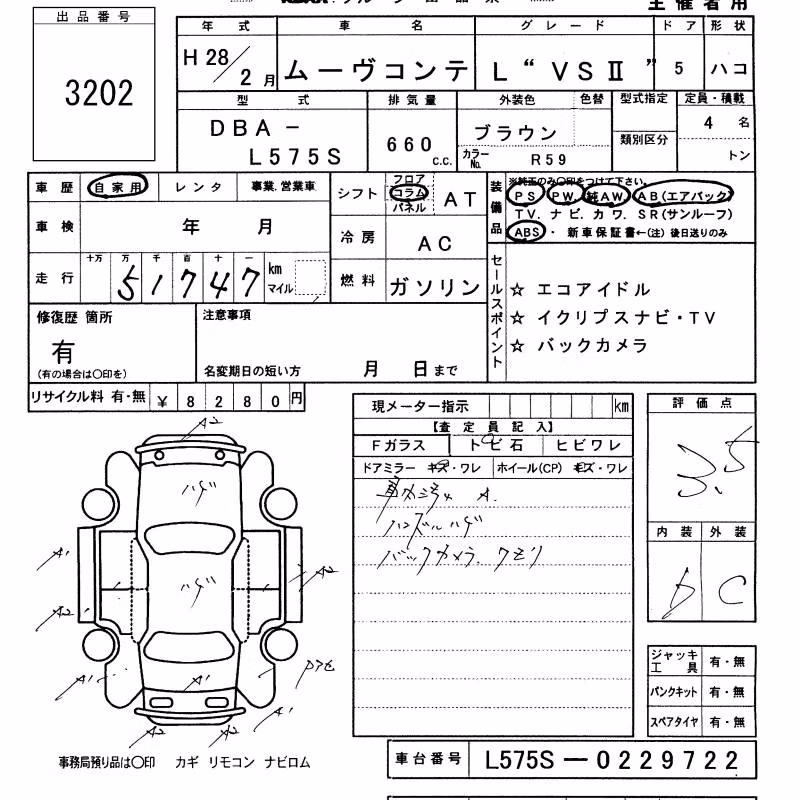 主催者用
出品番号
3202
年式 車名 グレード ドア 形状
H28/2月 ムーヴコンテ L“VSⅡ” 5 ハコ
型式 排気量 外装色 色替 型式指定 定員・積載
DBA－ 660 c.c. ブラウン 類別区分 4 名
L575S カラーNo. R59 トン
車歴 自家用 レンタ 事業、営業車
シフト フロア コラム パネル AT
装備品 ※純正のみ〇印をつけて下さい。
PS PW. 純AW. AB(エアバック)
TV. ナビ. カワ. SR(サンルーフ)
ABS・ 新車保証書←(注) 後日送りのみ
車検 年 月
冷房 AC
走行 十万 万 千 百 十 一
51747 km マイル
燃料 ガソリン
セールスポイント
☆ エコアイドル
☆ イクリプスナビ・TV
☆ バックカメラ
修復歴 箇所
有
(有の場合は〇印を)
注意事項
名変期日の短い方 月 日まで
リサイクル料 有・無 ¥ 8280円
現メーター指示 km
【査定員記入】
Fガラス トビ石 ヒビワレ
ドアミラー キズ・ワレ ホイール(CP) キズ・ワレ
ハンドルハゲ
バックカメラ. クモリ
評価点
3.5
内装 外装
D C
A2
ハゲ
A1 ハゲ A2
A2
A1 A1
A2 A2 A1
ジャッキ工具 有・無
パンクキット 有・無
スペアタイヤ 有・無
事務局預り品は〇印 カギ リモコン ナビロム
車台番号 L575S－0229722